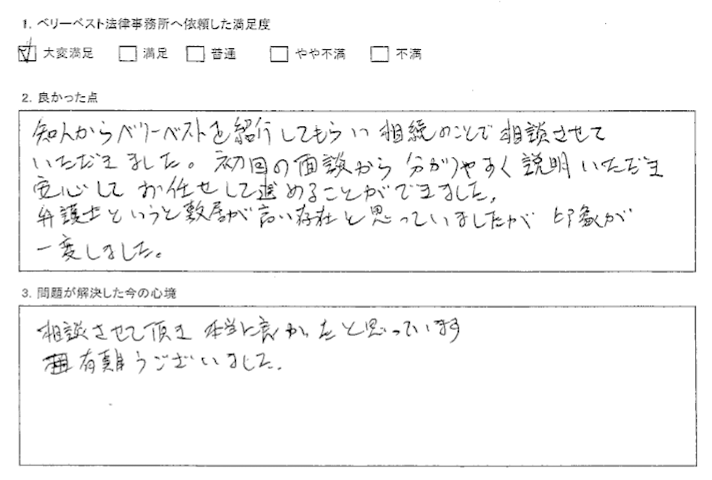 1. ベリーベスト法律事務所へ依頼した満足度
☑ 大変満足 □ 満足 □ 普通 □ やや不満 □ 不満
2. 良かった点
知人からベリーベストを紹介してもらい 相続のことで相談させて
いただきました。初回の面談から 分かりやすく説明いただき
安心して お任せして進めることができました。
弁護士というと敷居が高い存在と思っていましたが 印象が
一変しました。
3. 問題が解決した今の心境
相談させて頂き 本当に良かったと思っています
有難うございました。